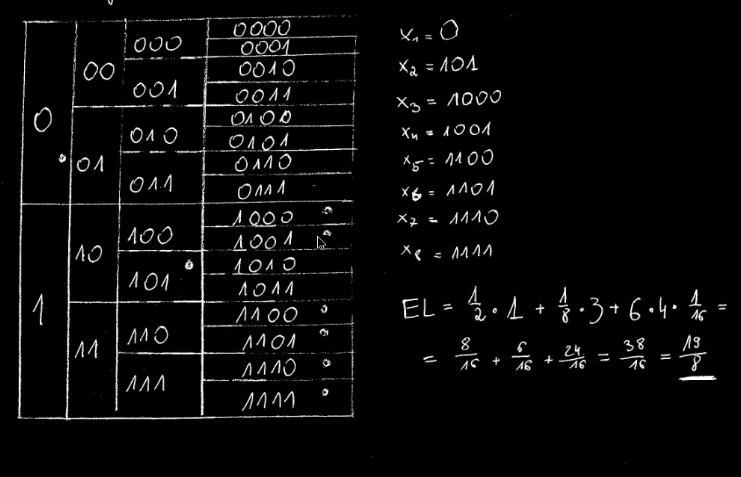 0 00 000 0000
0001
001 0010
0011
01 010 0100
0101
011 0110
0111
1 10 100 1000
1001
101 1010
1011
11 110 1100
1101
111 1110
1111
x₁ = 0
x₂ = 101
x₃ = 1000
x₄ = 1001
x₅ = 1100
x₆ = 1101
x₇ = 1110
x₈ = 1111
EL = 1/2 · 1 + 1/8 · 3 + 6 · 4 · 1/16 =
= 8/16 + 6/16 + 24/16 = 38/16 = 19/8